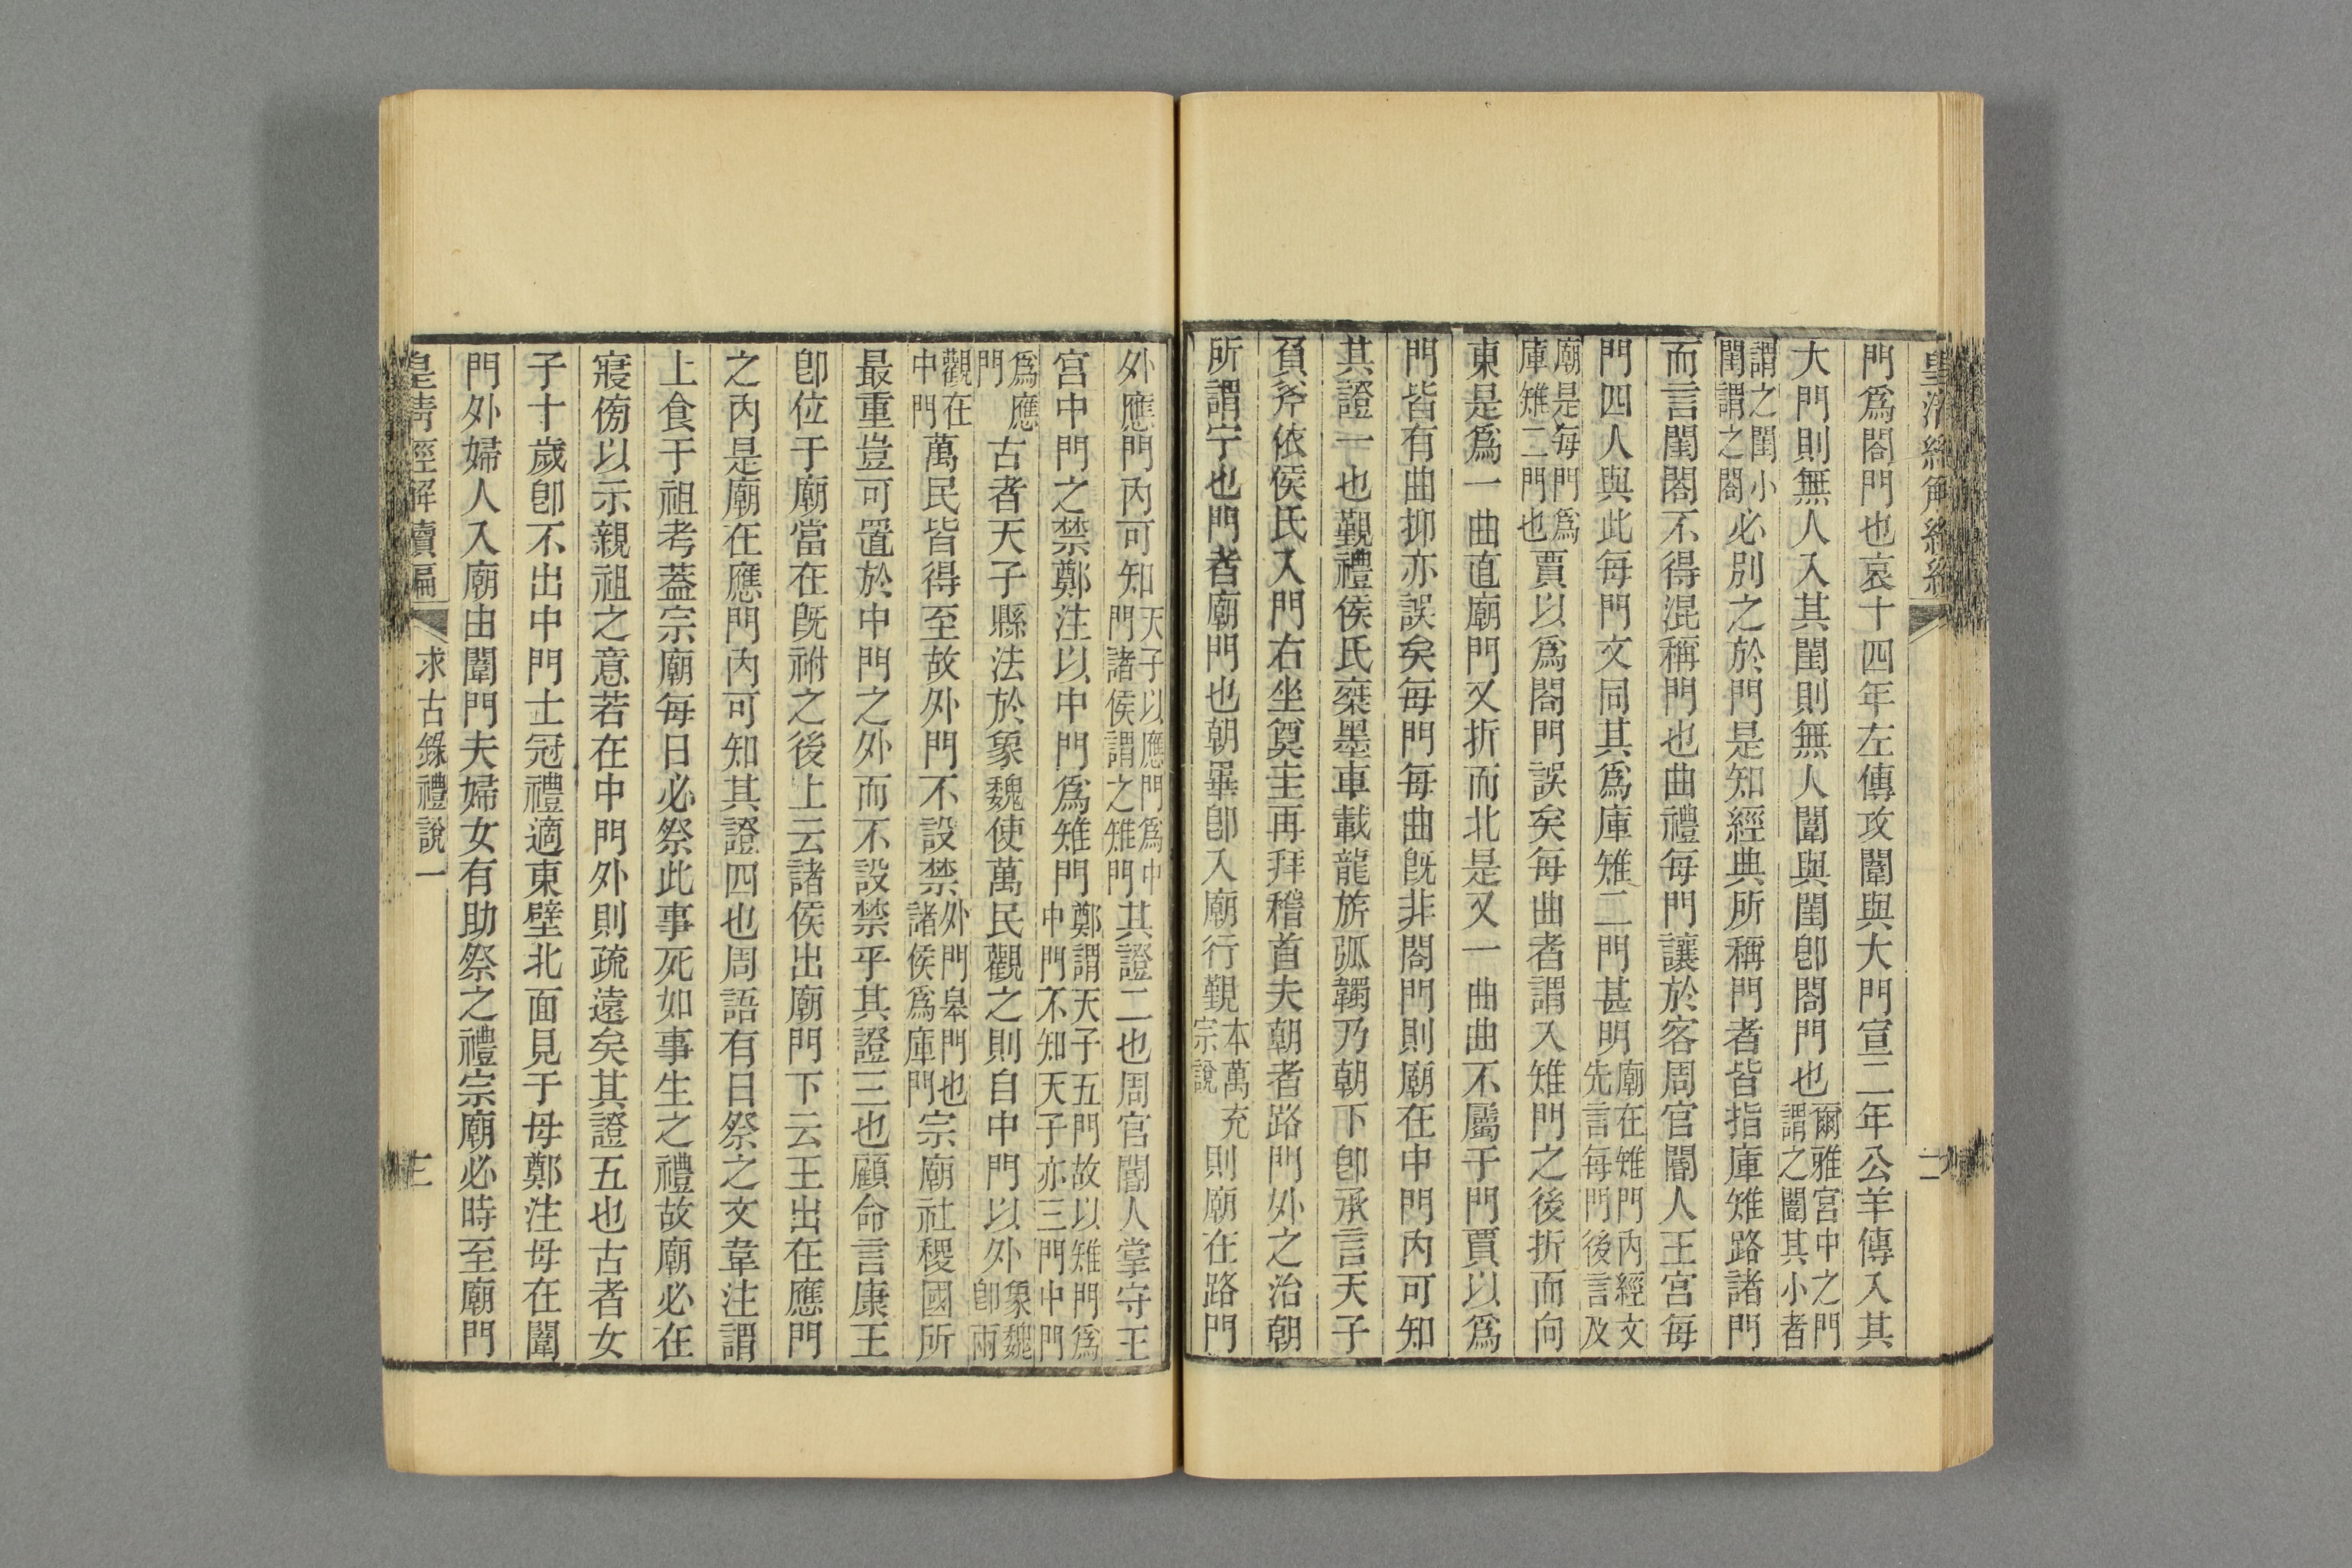 門爲閤門也哀十四年左傳攻闈與大門宣二年公羊傳入其
大門則無人入其閨則無人闈與閨卽閤門也爾雅宮中之門謂之闈其小者
謂之閨小閨謂之閤必別之於門是知經典所稱門者皆指庫雉路諸門
而言閨閤不得混稱門也曲禮每門讓於客周官閽人王宮每
門四人與此每門文同其爲庫雉二門甚明廟在雉門內經文先言每門後言及
廟是每門爲庫雉二門也賈以爲閤門誤矣每曲者謂入雉門之後折而向
東是爲一曲直廟門又折而北是又一曲曲不屬于門賈以爲
門皆有曲抑亦誤矣每門每曲旣非閤門則廟在中門內可知
其證一也覲禮侯氏裨墨車載龍旂弧韣乃朝下卽承言天子
負斧依侯氏入門右坐奠圭再拜稽首夫朝者路門外之治朝
所謂宁也門者廟門也朝畢卽入廟行覲本萬充宗說則廟在路門
外應門內可知天子以應門爲中門諸侯謂之雉門其證二也周官閽人掌守王
宮中門之禁鄭注以中門爲雉門鄭謂天子五門故以雉門爲中門不知天子亦三門中門
爲應門古者天子縣法於象魏使萬民觀之則自中門以外象魏卽兩
觀在中門萬民皆得至故外門不設禁外門皋門也諸侯爲庫門宗廟社稷國所
最重豈可置於中門之外而不設禁乎其證三也顧命言康王
卽位于廟當在旣祔之後上云諸侯出廟門下云王出在應門
之內是廟在應門內可知其證四也周語有日祭之文韋注謂
上食于祖考蓋宗廟每日必祭此事死如事生之禮故廟必在
寢傍以示親祖之意若在中門外則疏遠矣其證五也古者女
子十歲卽不出中門士冠禮適東壁北面見于母鄭注母在闈
門外婦人入廟由闈門夫婦女有助祭之禮宗廟必時至廟門
皇清經解續編
求古錄禮說一
三